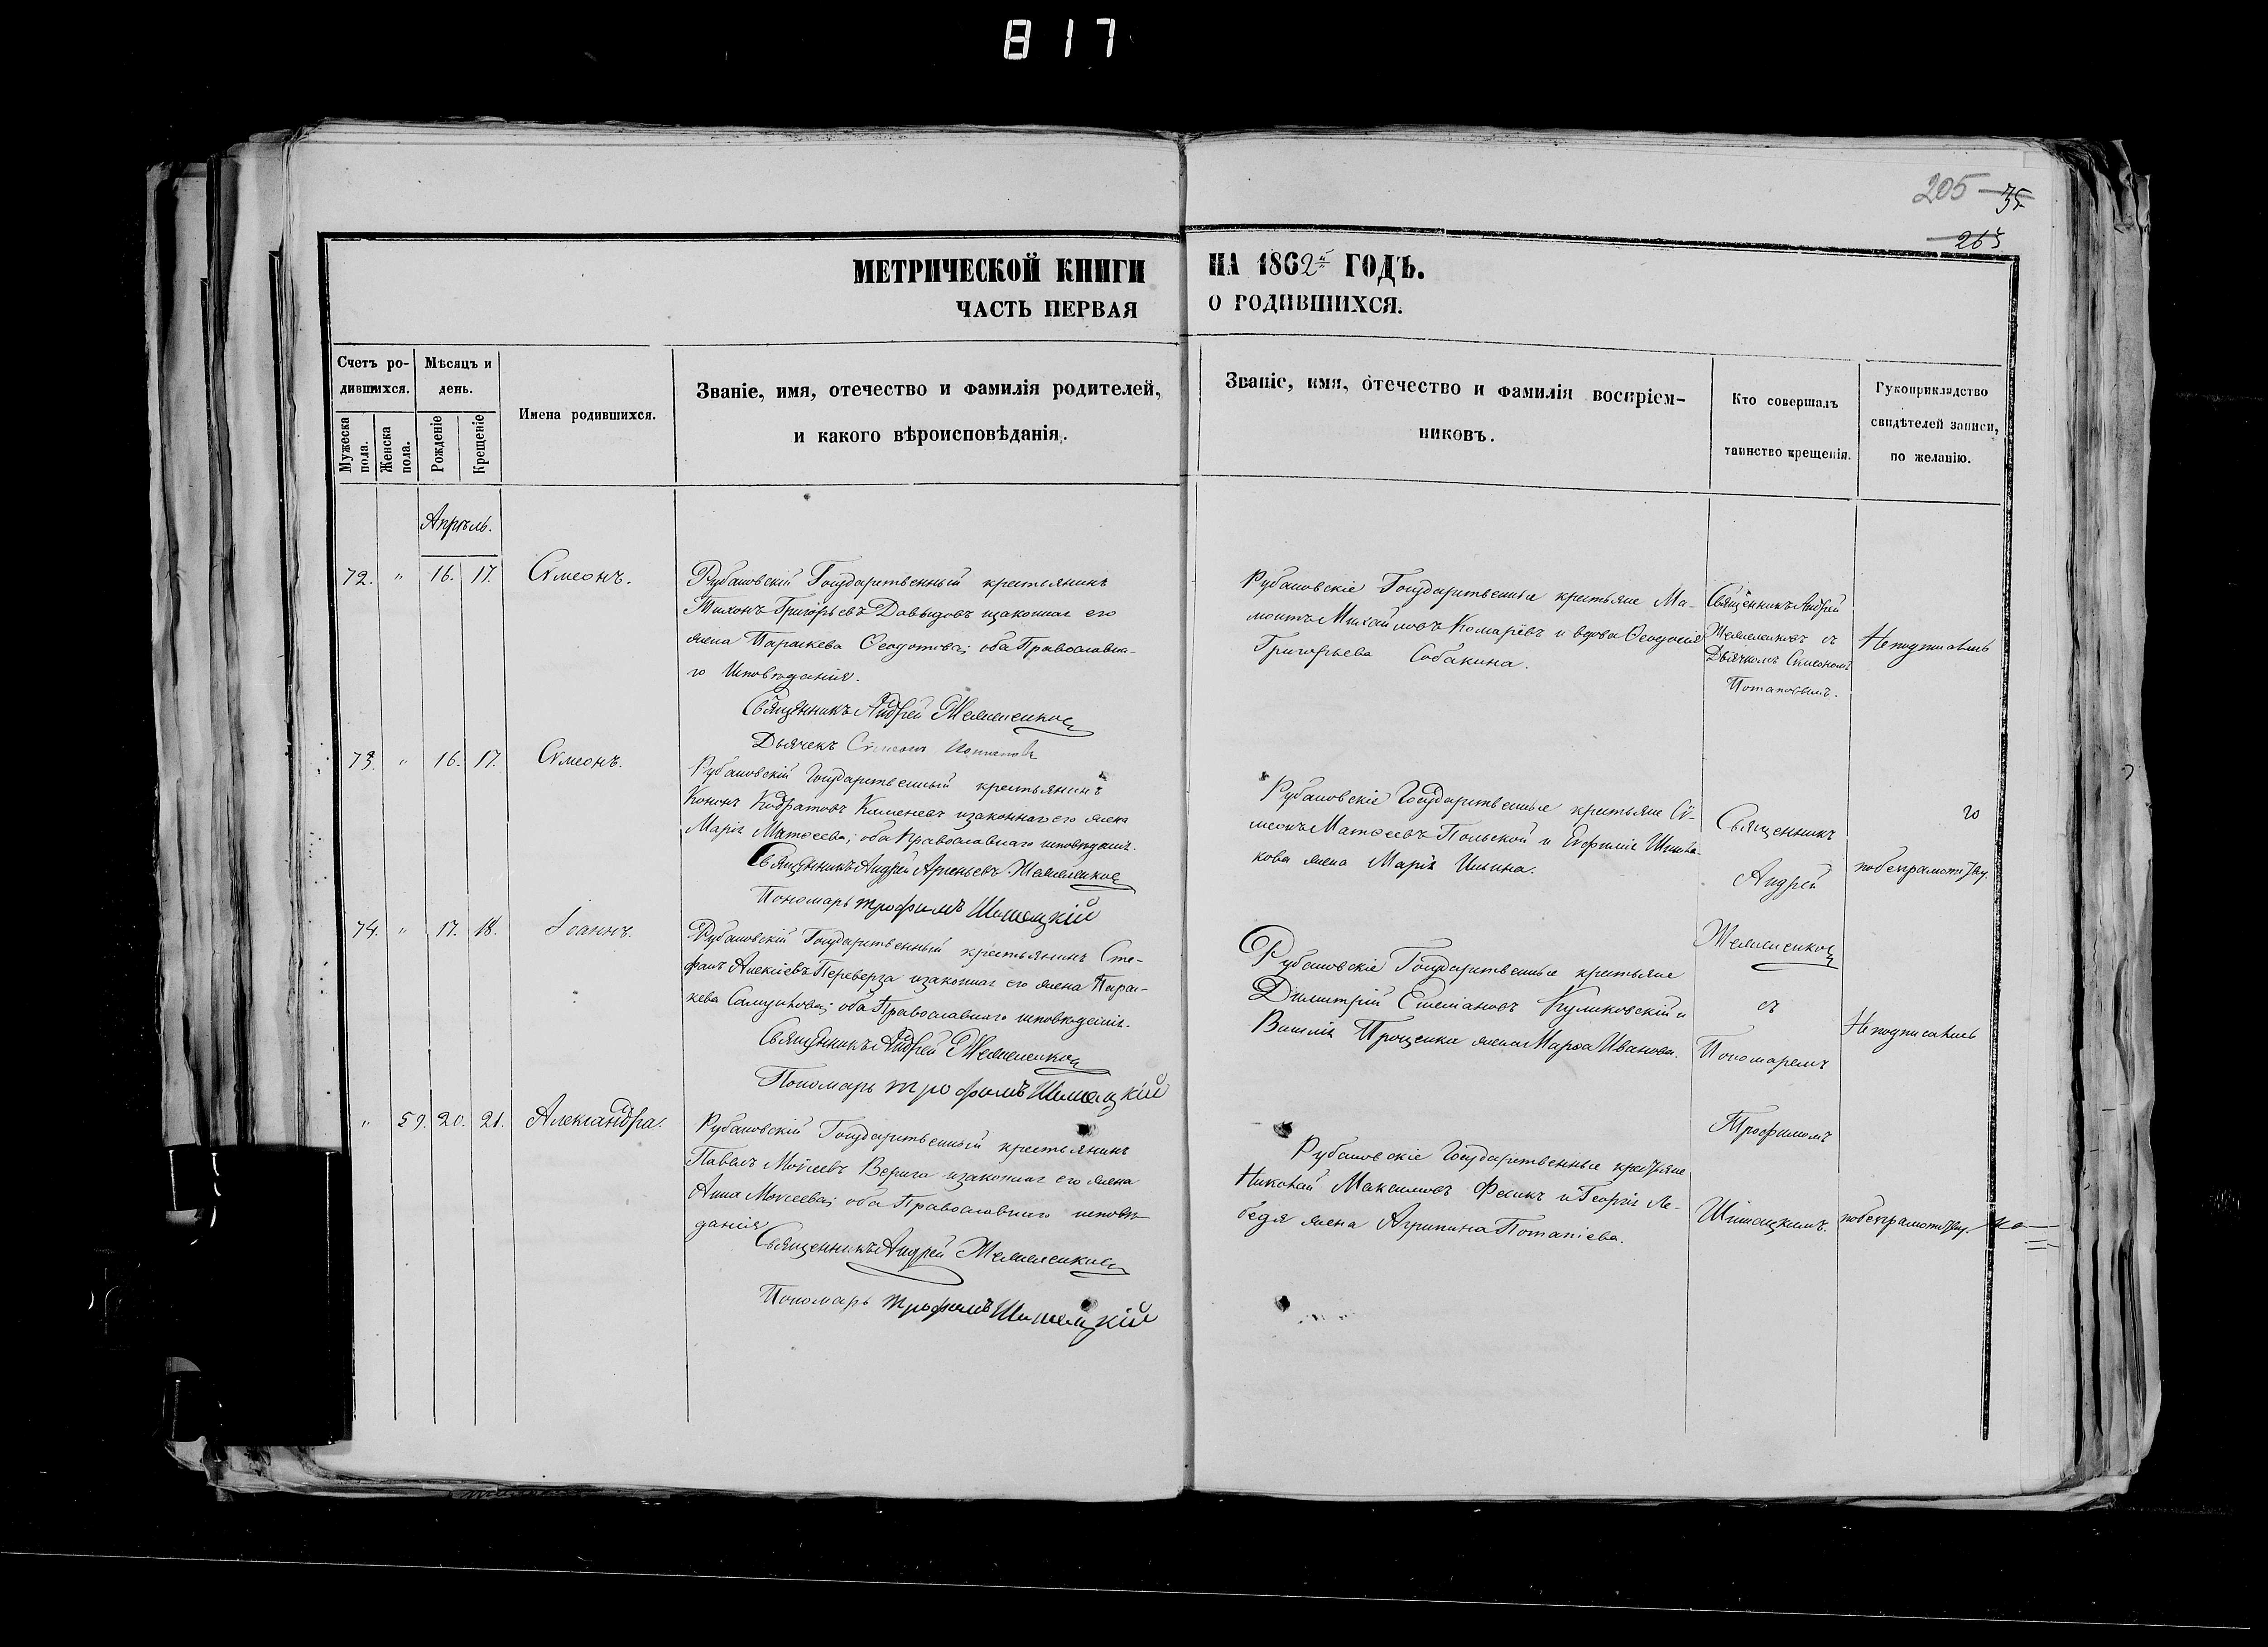 817
205 35
263
МЕТРИЧЕСКОЙ КНИГИ НА 1862й ГОДЪ.
ЧАСТЬ ПЕРВАЯ О РОДИВШИХСЯ.
Счетъ ро-
дившихся.
Мужеска пола.
Женска пола.
Мѣсяцъ и
день.
Рожденіе
Крещеніе
Имена родившихся.
Званіе, имя, отечество и фамилія родителей,
и какого вѣроисповѣданія.
Званіе, имя, отечество и фамилія воспріем-
никовъ.
Кто совершалъ
таинство крещенія.
Рукоприкладство
свидѣтелей записи,
по желанію.
Апрѣль.
72. " 16. 17. Сѵмеонъ.
Рубановскій Государственный крестьянинъ
Тихонъ Григорьевъ Давыдовъ изаконная его
жена Параскева Ѳедотова; оба Православна-
го Исповѣданія.
Священникъ Андрей
Дьячекъ Сѵмеонъ Потаповъ
Рубановскіе Государственные крестьяне Ма-
монтъ Михайловъ Комарёвъ и вдова Ѳеодосія
Григорьева Собакина.
Священникъ Андрей
съ
Дьячкомъ Сѵмеономъ
Потаповымъ.
Неподписались
73. " 16. 17. Сѵмеонъ.
Рубановскій Государственный крестьянинъ
Кононъ Кодратовъ изаконная его жена
Марія Матѳеева; оба Православнаго исповѣданія.
Священникъ Андрей Арсеньевъ
Пономарь Трофимъ
Рубановскіе Государственные крестьяне Сѵ-
меонъ Матѳеевъ Польской и Евфимія
кова жена Марія Ильина.
Священникъ
Андрей
по безграмотству.
74. " 17. 18. Іоаннъ.
Рубановскій Государственный крестьянинъ Сте-
фанъ Алексіевъ Переверза изаконная его жена Парас-
кева Самуилова; оба Православнаго исповѣданія.
Священникъ Андрей
Пономарь Трофимъ
Рубановскіе Государственные крестьяне
Димитрій Куликовскій и
Василія Проценка жена Марѳа Иванова.
съ
Пономаремъ
Неподписались
" 59. 20. 21. Александра.
Рубановскій Государственный крестьянинъ
Павелъ Моисеевъ Верига изаконная его жена
Анна Моисеева; оба Православнаго исповѣ-
данія
Священникъ Андрей
Пономарь Трофимъ
Рубановскіе Государственные крестьяне
Николай Максимовъ Фесикъ и Георгія Ле-
бедя жена Агрипина Потапіева.
Трофимомъ
по безграмотству.